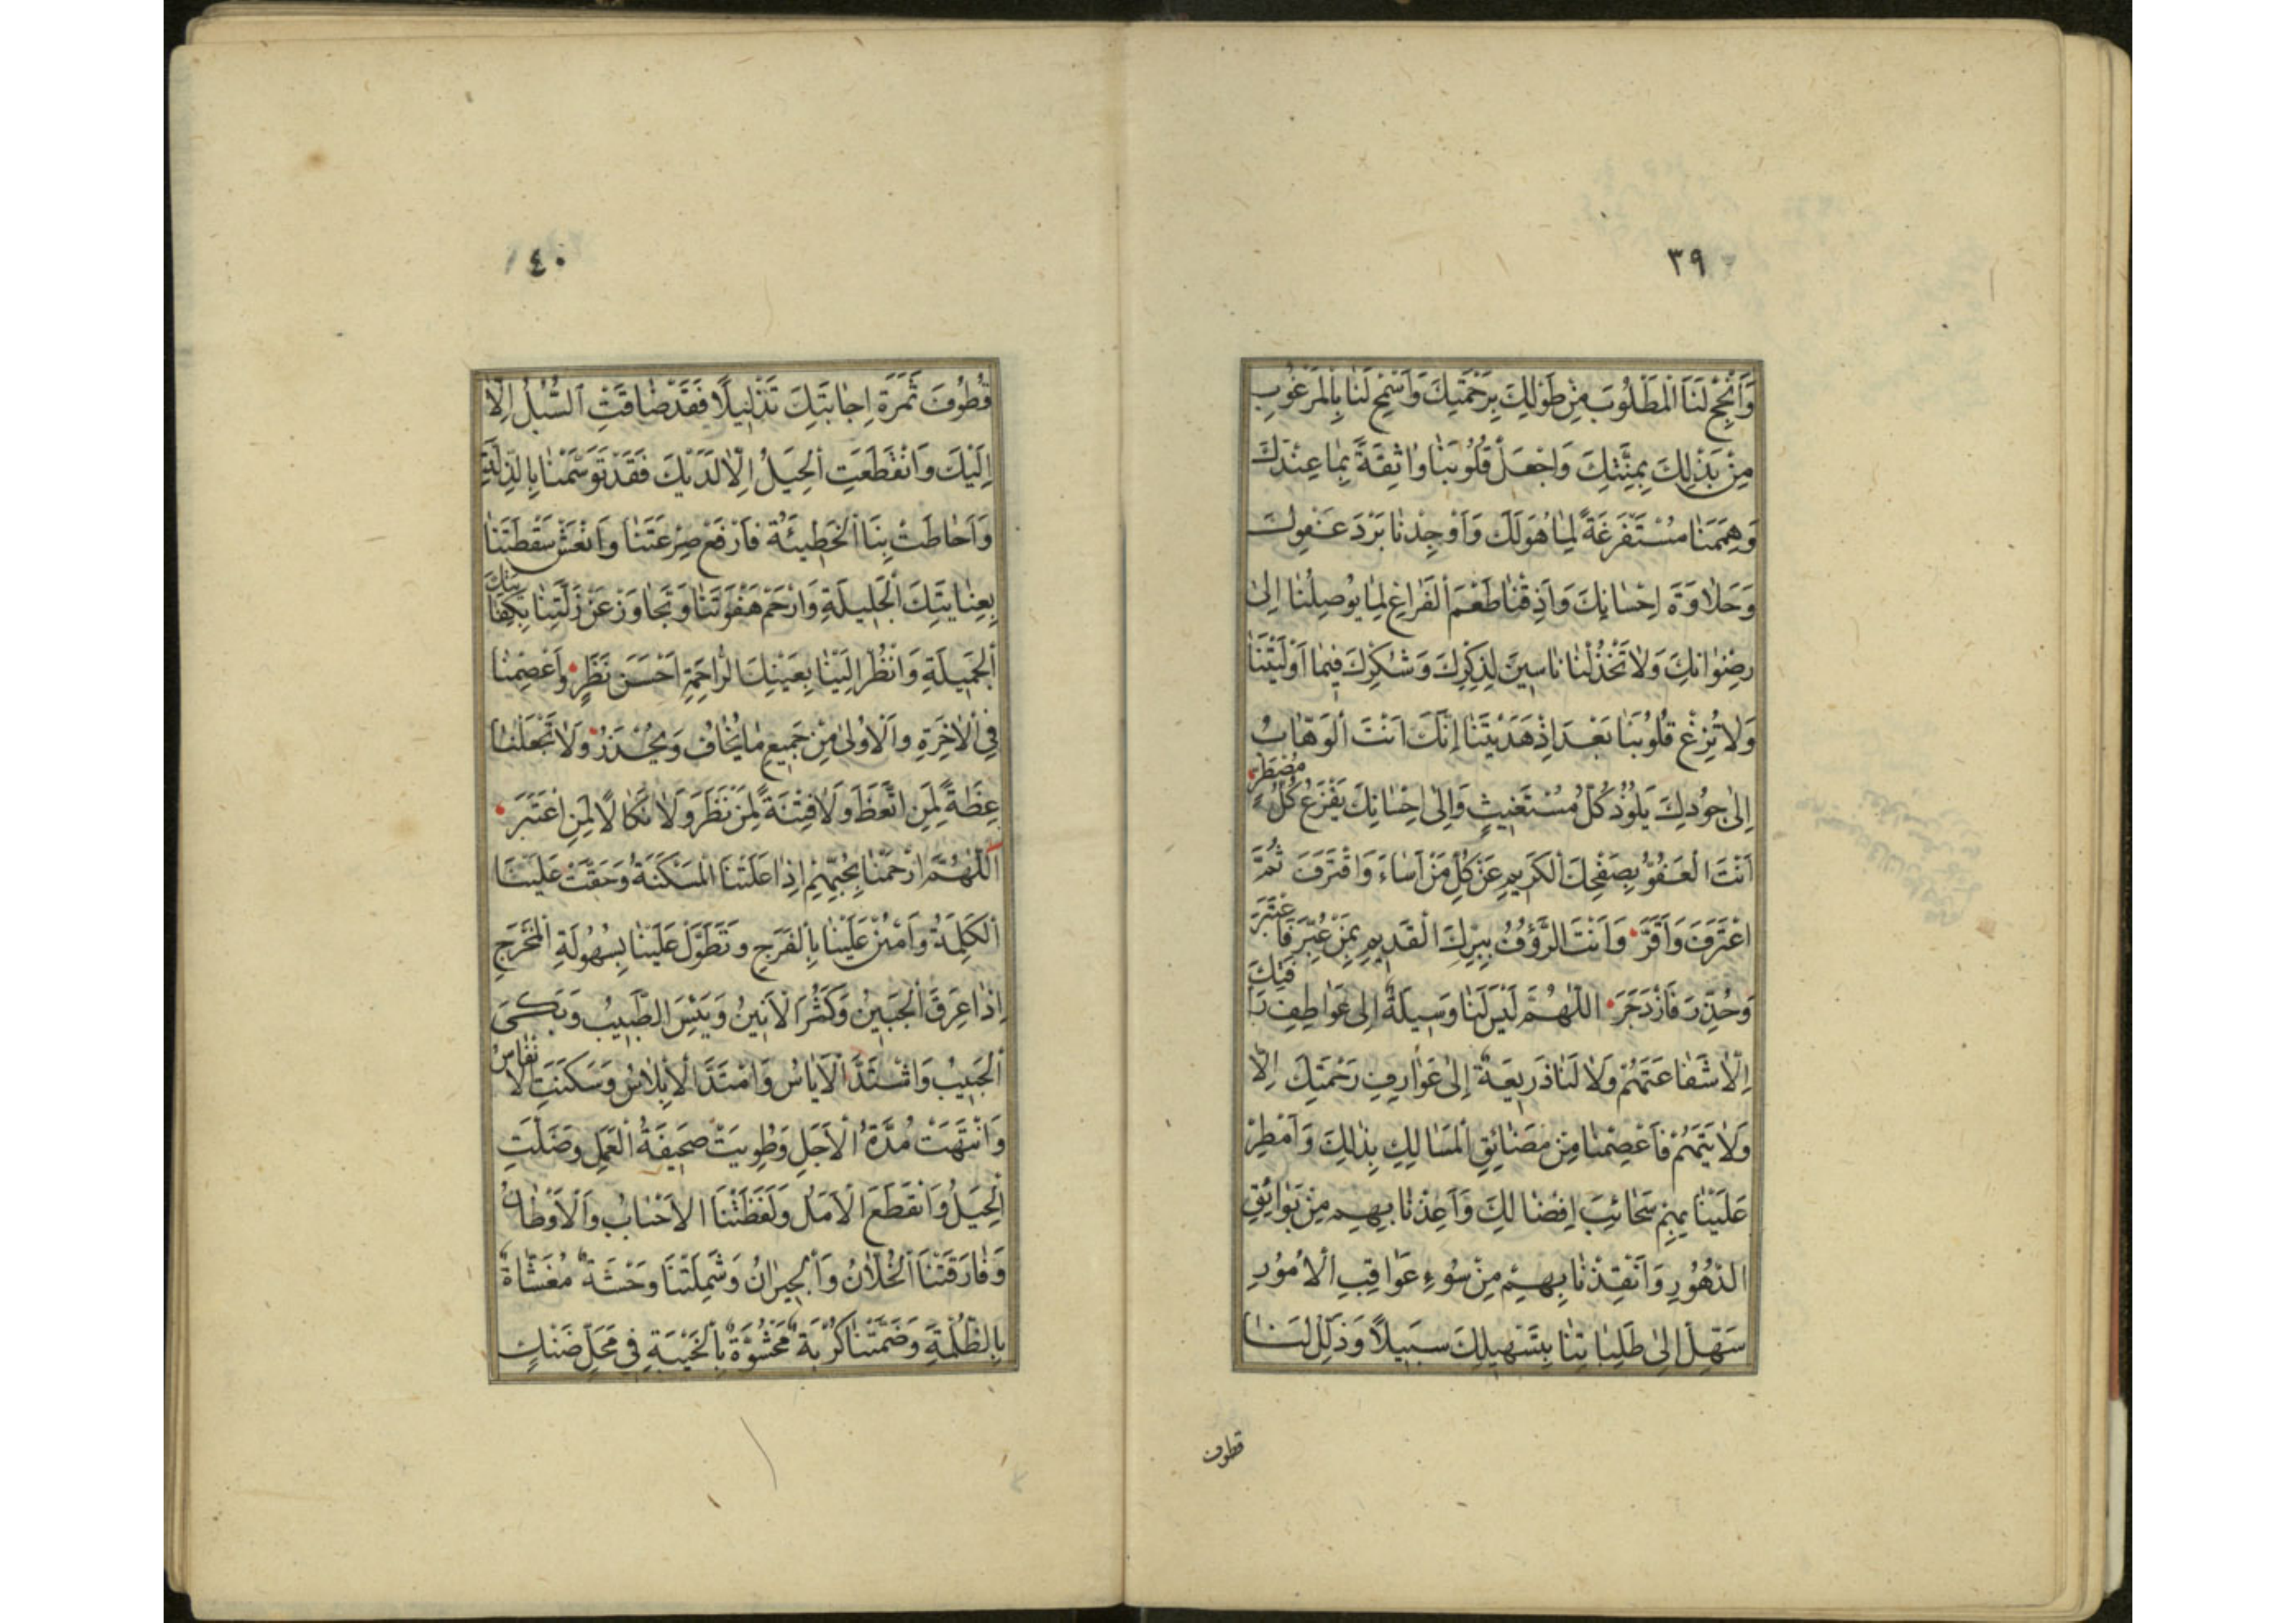 ٣٩
وَاَنْجِحْ لَنَا الْمَطْلُوبَ مِنْ طَوْلِكَ بِرَحْمَتِكَ وَاَسْمِحْ لَنَا بِالْمَرْغُوبِ
مِنْ بَذْلِكَ بِمِنَّتِكَ وَاجْعَلْ قُلُوبَنَا وَاثِقَةً بِمَا عِنْدَكَ
وَهِمَمَنَا مُسْتَفْرَغَةً لِمَا هُوَ لَكَ وَاَوْجِدْنَا بَرْدَ عَفْوِكَ
وَحَلَاوَةَ اِحْسَانِكَ وَاَذِقْنَا طَعْمَ الْفَرَاغِ لِمَا يُوصِلُنَا اِلىٰ
رِضْوَانِكَ وَلَا تَخْذُلْنَا نَاسِينَ لِذِكْرِكَ وَشُكْرِكَ فِيمَا اَوْلَيْتَنَا
وَلَا تُزِغْ قُلُوبَنَا بَعْدَ اِذْ هَدَيْتَنَا اِنَّكَ اَنْتَ الْوَهَّابُ
اِلىٰ جُودِكَ يَلُوذُ كُلُّ مُسْتَغِيثٍ وَاِلىٰ اِحْسَانِكَ يَفْزَعُ كُلُّ مُضْطَرٍّ
اَنْتَ الْعَفُوُّ بِصَفْحِكَ الْكَرِيمِ عَنْ كُلِّ مَنْ اَسَاءَ وَاقْتَرَفَ ثُمَّ
اعْتَرَفَ وَاَقَرَّ وَاَنْتَ الرَّؤُفُ بِبِرِّكَ الْقَدِيمِ بِمَنْ عُبِّرَ فَاعْتَبَرَ
وَحُذِّرَ فَازْدَجَرَ اللّٰهُمَّ لَيْسَ لَنَا وَسِيلَةٌ اِلىٰ عَوَاطِفِ رَافَتِكَ
اِلَّا شَفَاعَتَهُمْ وَلَا لَنَا ذَرِيعَةٌ اِلىٰ عَوَارِفِ رَحْمَتِكَ اِلَّا
وَلَايَتَهُمْ فَاعْصِمْنَا مِنْ مَضَائِقِ الْمَسَالِكِ بِذٰلِكَ وَاَمْطِرْ
عَلَيْنَا بِهِمْ سَحَائِبَ اِفْضَالِكَ وَاَعِذْنَا بِهِمْ مِنْ بَوَائِقِ
الدُّهُورِ وَاَنْقِذْنَا بِهِمْ مِنْ سُوءِ عَوَاقِبِ الْاُمُورِ
سَهِّلْ اِلىٰ طَلِبَاتِنَا بِتَسْهِيلِكَ سَبِيلًا وَذَلِّلْ لَنَا
قطوف
٤٠
قُطُوفَ ثَمَرَةِ اِجَابَتِكَ تَذْلِيلًا فَقَدْ ضَاقَتِ السُّبُلُ اِلَّا
اِلَيْكَ وَانْقَطَعَتِ الْحِيَلُ اِلَّا لَدَيْكَ فَقَدْ تَوَسَّمْنَا بِالذِّلَّةِ
وَاَحَاطَتْ بِنَا الْخَطِيئَةُ فَارْفَعْ صِرْعَتَنَا وَانْعَشْ سَقْطَتَنَا
بِعِنَايَتِكَ الْجَلِيلَةِ وَارْحَمْ هَفْوَتَنَا وَتَجَاوَزْ عَنْ زَلَّتِنَا بِكِفَايَتِكَ
الْجَمِيلَةِ وَانْظُرْ اِلَيْنَا بِعَيْنِكَ الرَّاحِمَةِ اَحْسَنَ نَظَرٍ وَاَعْصِمْنَا
فِي الْاٰخِرَةِ وَالْاُولىٰ مِنْ جَمِيعِ مَا يُخَافُ وَيُحْذَرُ وَلَا تَجْعَلْنَا
عِظَةً لِمَنِ اتَّعَظَ وَلَا فِتْنَةً لِمَنْ نَظَرَ وَلَا نَكَالًا لِمَنِ اعْتَبَرَ
اللّٰهُمَّ ارْحَمْنَا بِحُبِّهِمْ اِذَا عَلَتْنَا الْمَسْكَنَةُ وَحَقَّتْ عَلَيْنَا
الْكَلِمَةُ وَامْنُنْ عَلَيْنَا بِالْفَرَجِ وَتَطَوَّلْ عَلَيْنَا بِسُهُولَةِ الْمَخْرَجِ
اِذَا عَرِقَ الْجَبِينُ وَكَثُرَ الْاَنِينُ وَيَئِسَ الطَّبِيبُ وَبَكىٰ
الْحَبِيبُ وَاشْتَدَّ الْاَيَاسُ وَامْتَدَّ الْاِبْلَاسُ وَسَكَنَتِ الْاَنْفَاسُ
وَانْتَهَتْ مُدَّةُ الْاَجَلِ وَطُوِيَتْ صَحِيفَةُ الْعَمَلِ وَضَلَّتِ
الْحِيَلُ وَانْقَطَعَ الْاَمَلُ وَلَفَظَتْنَا الْاَحْبَابُ وَالْاَوْطَانُ
وَفَارَقَتْنَا الْخُلَّانُ وَالْجِيرَانُ وَشَمِلَتْنَا وَحْشَةٌ مُغَشَّاةٌ
بِالظُّلْمَةِ وَضَمَّتْنَا كُرْبَةٌ مَحْشُوَّةٌ بِالْخَيْبَةِ فِي مَحَلٍّ ضَنْكٍ